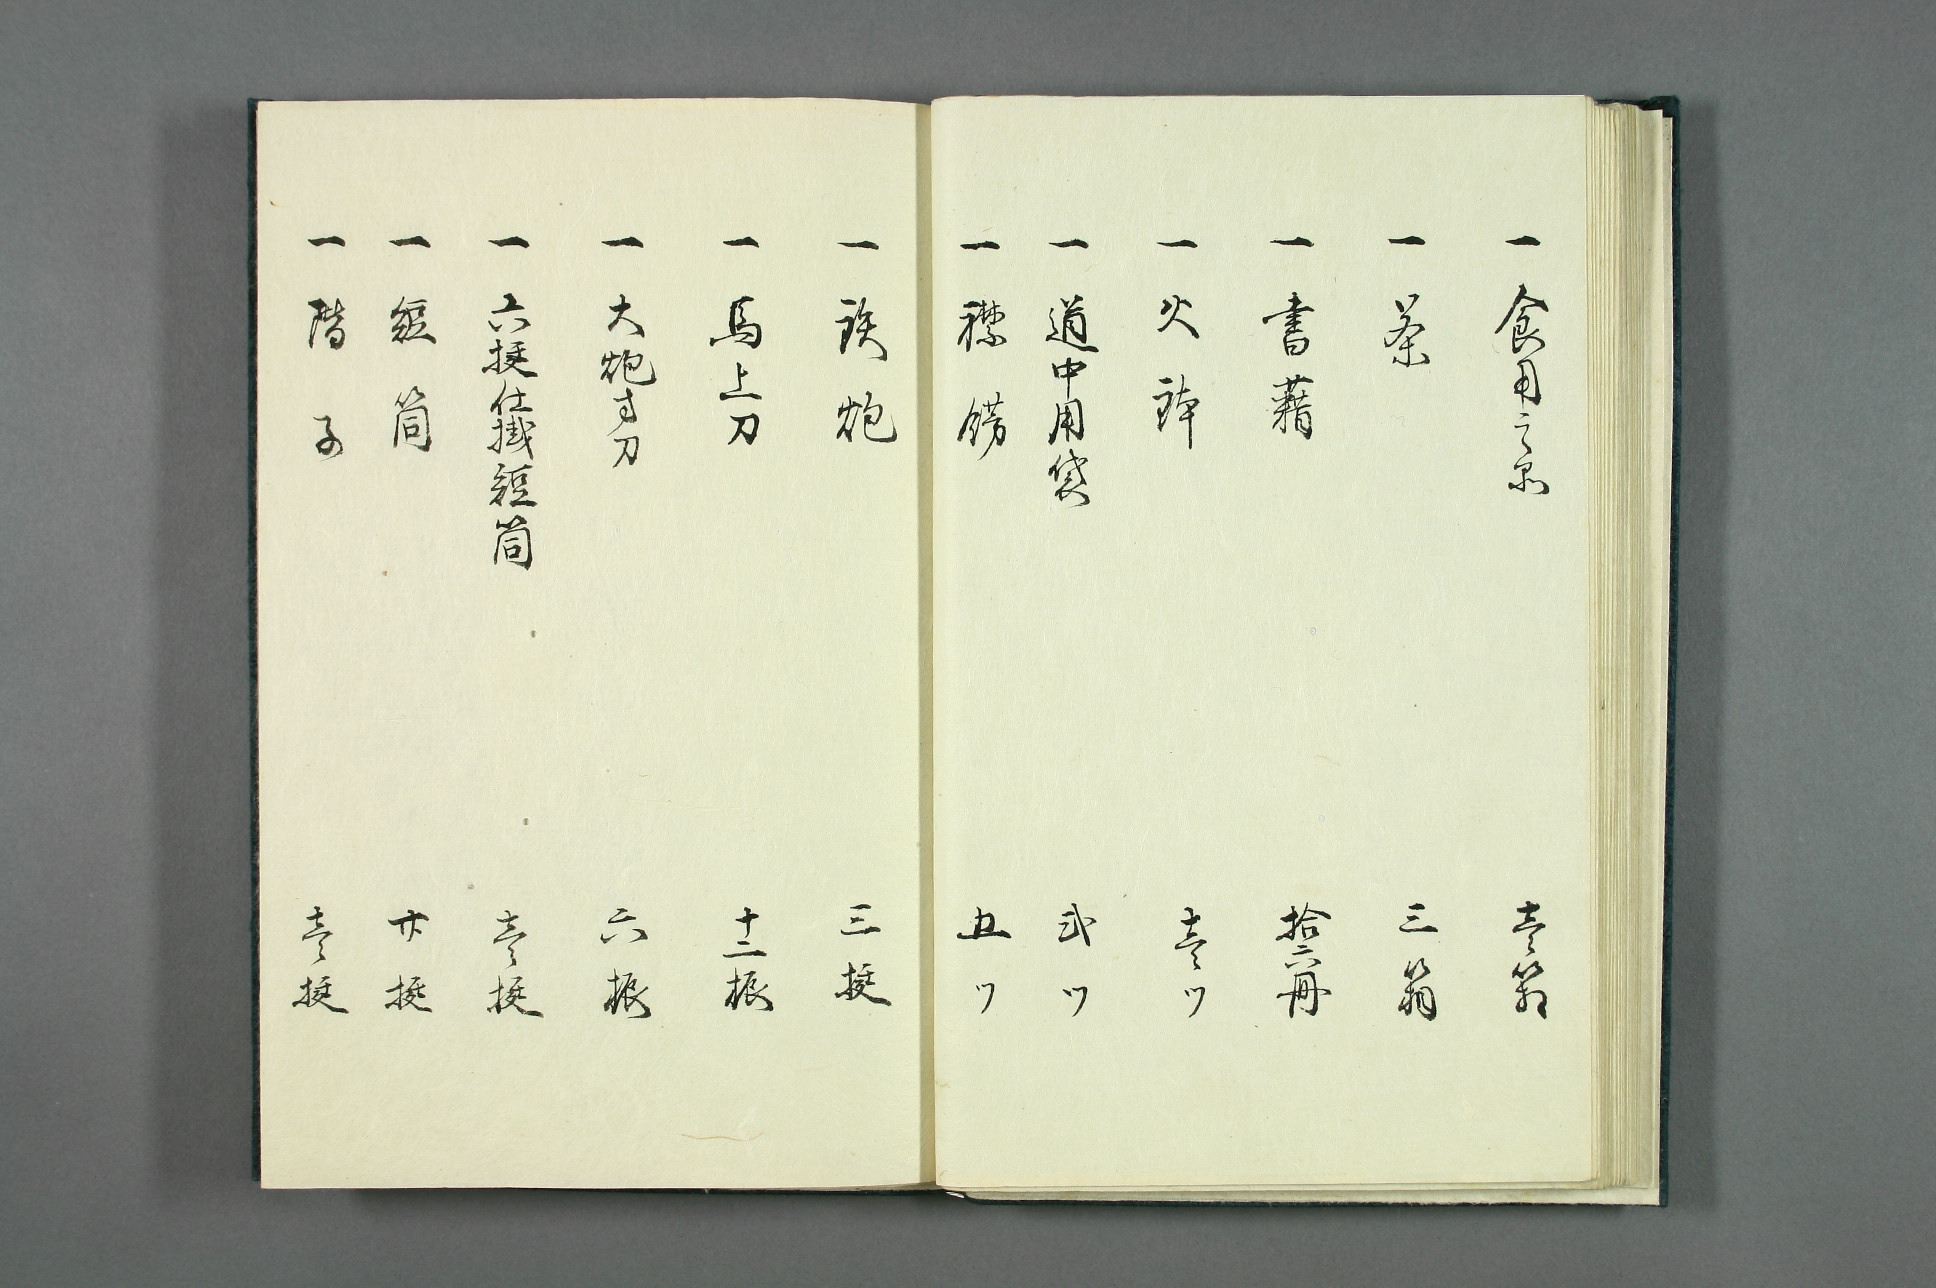 一 食用之品 壱箱
一 茶 三箱
一 書籍 拾六冊
一 火鉢 壱ツ
一 道中用袋 弐ツ
一 襟 五ツ
一 鉄炮 三挺
一 馬上刀 十二振
一 大炮方刀 六振
一 六挺仕掛短筒 壱挺
一 短筒 廿挺
一 階子 壱挺